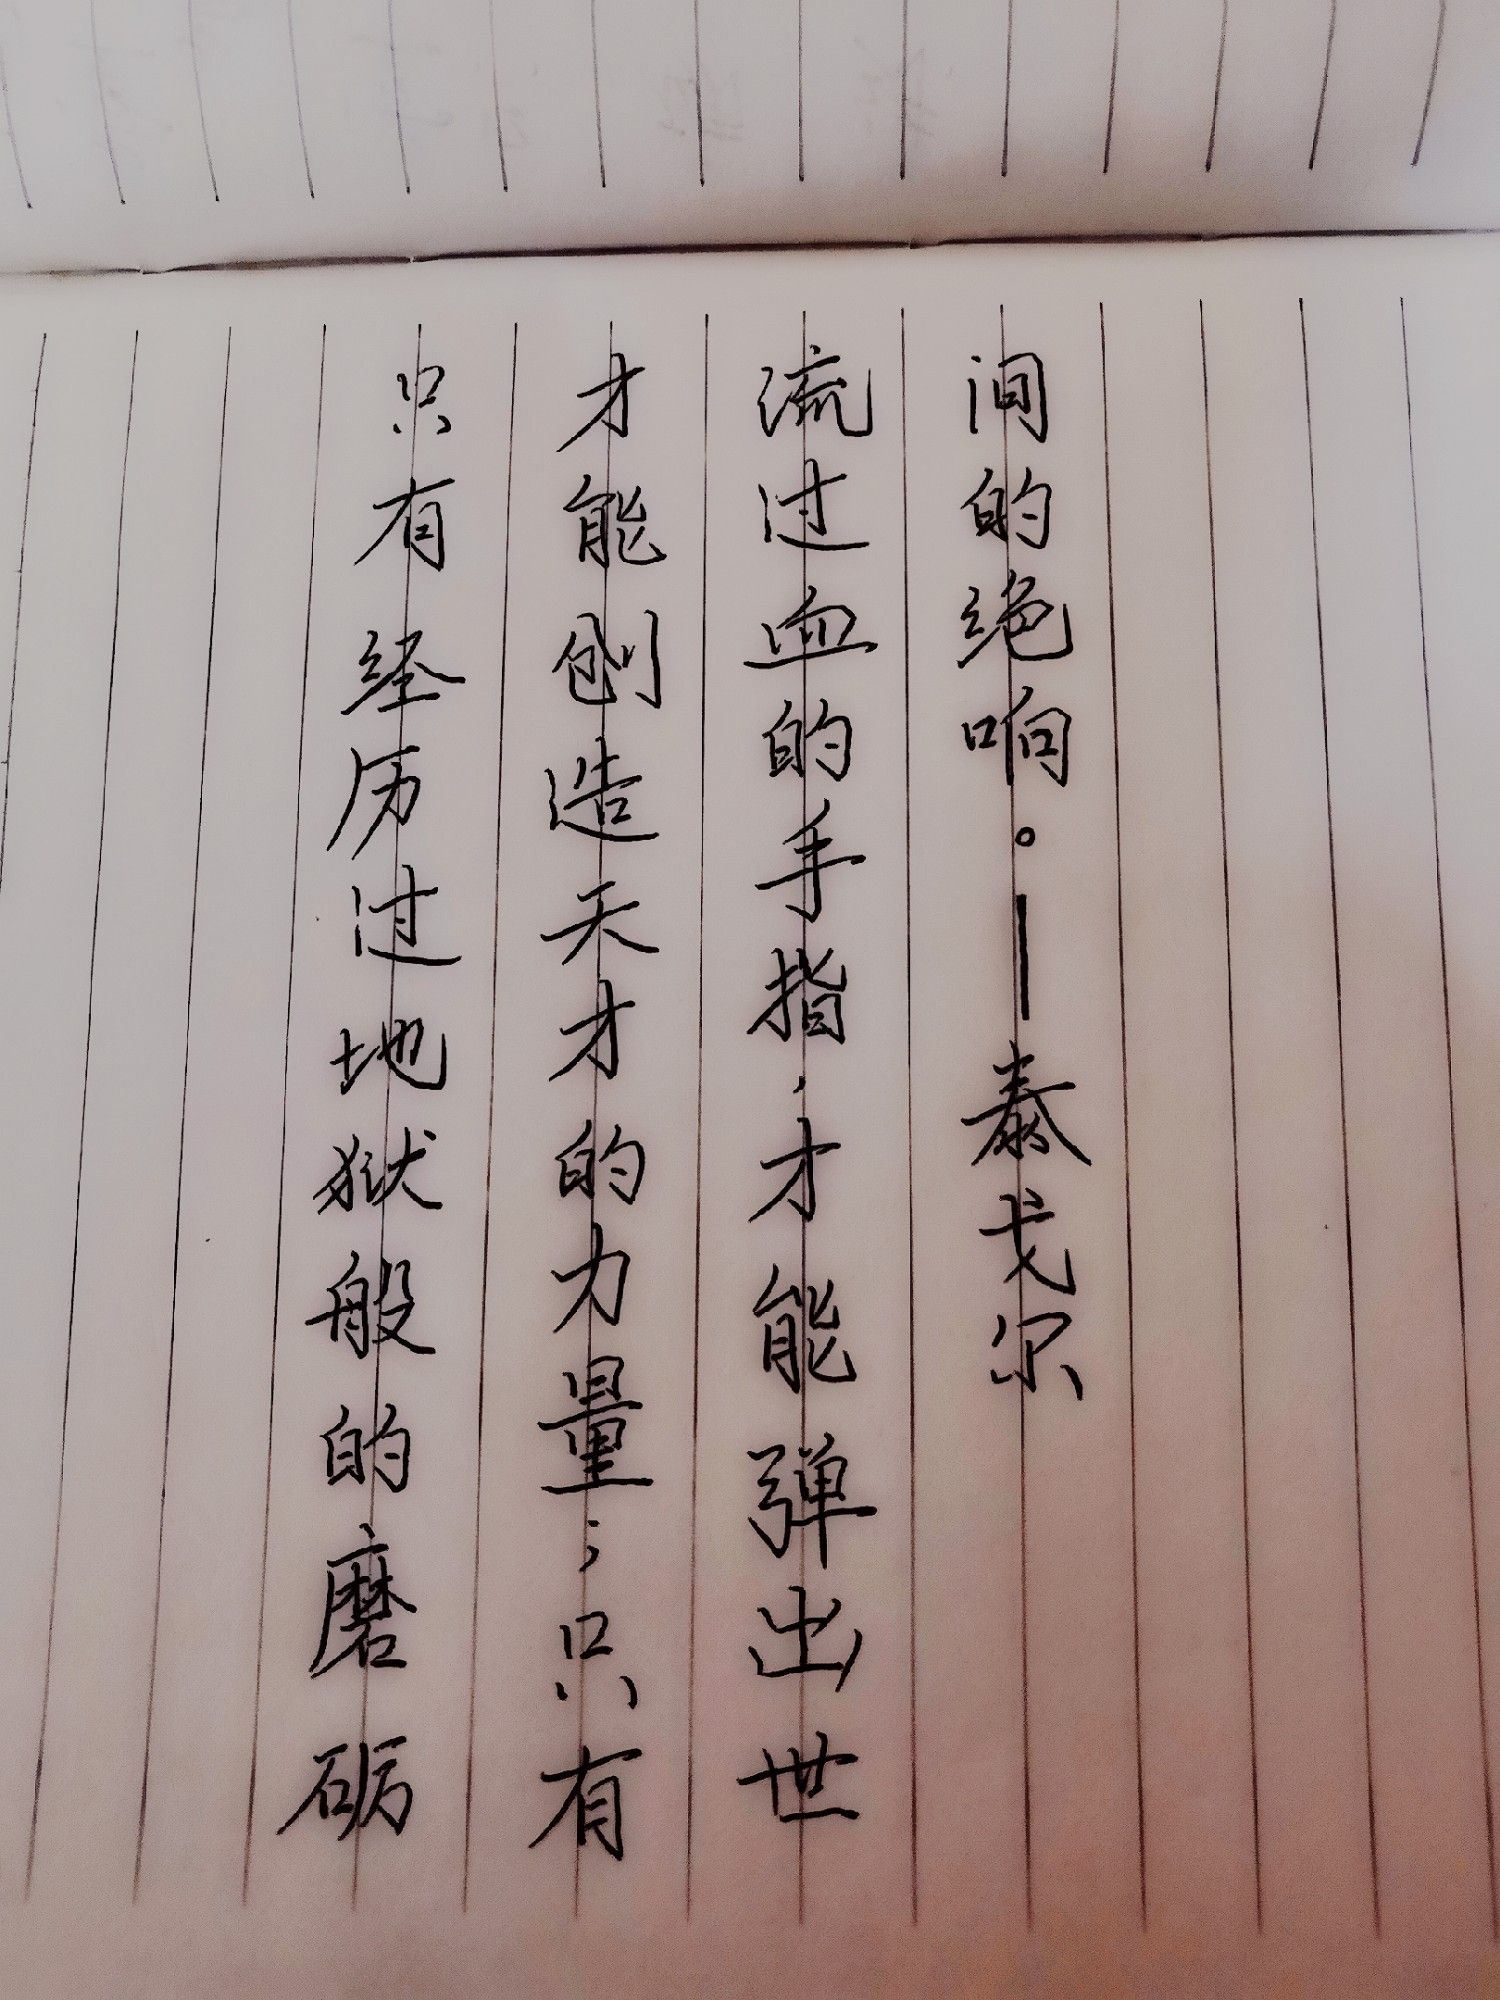 只有经历过地狱般的磨砺
才能创造天才的力量；只有
流过血的手指，才能弹出世
间的绝响。—泰戈尔